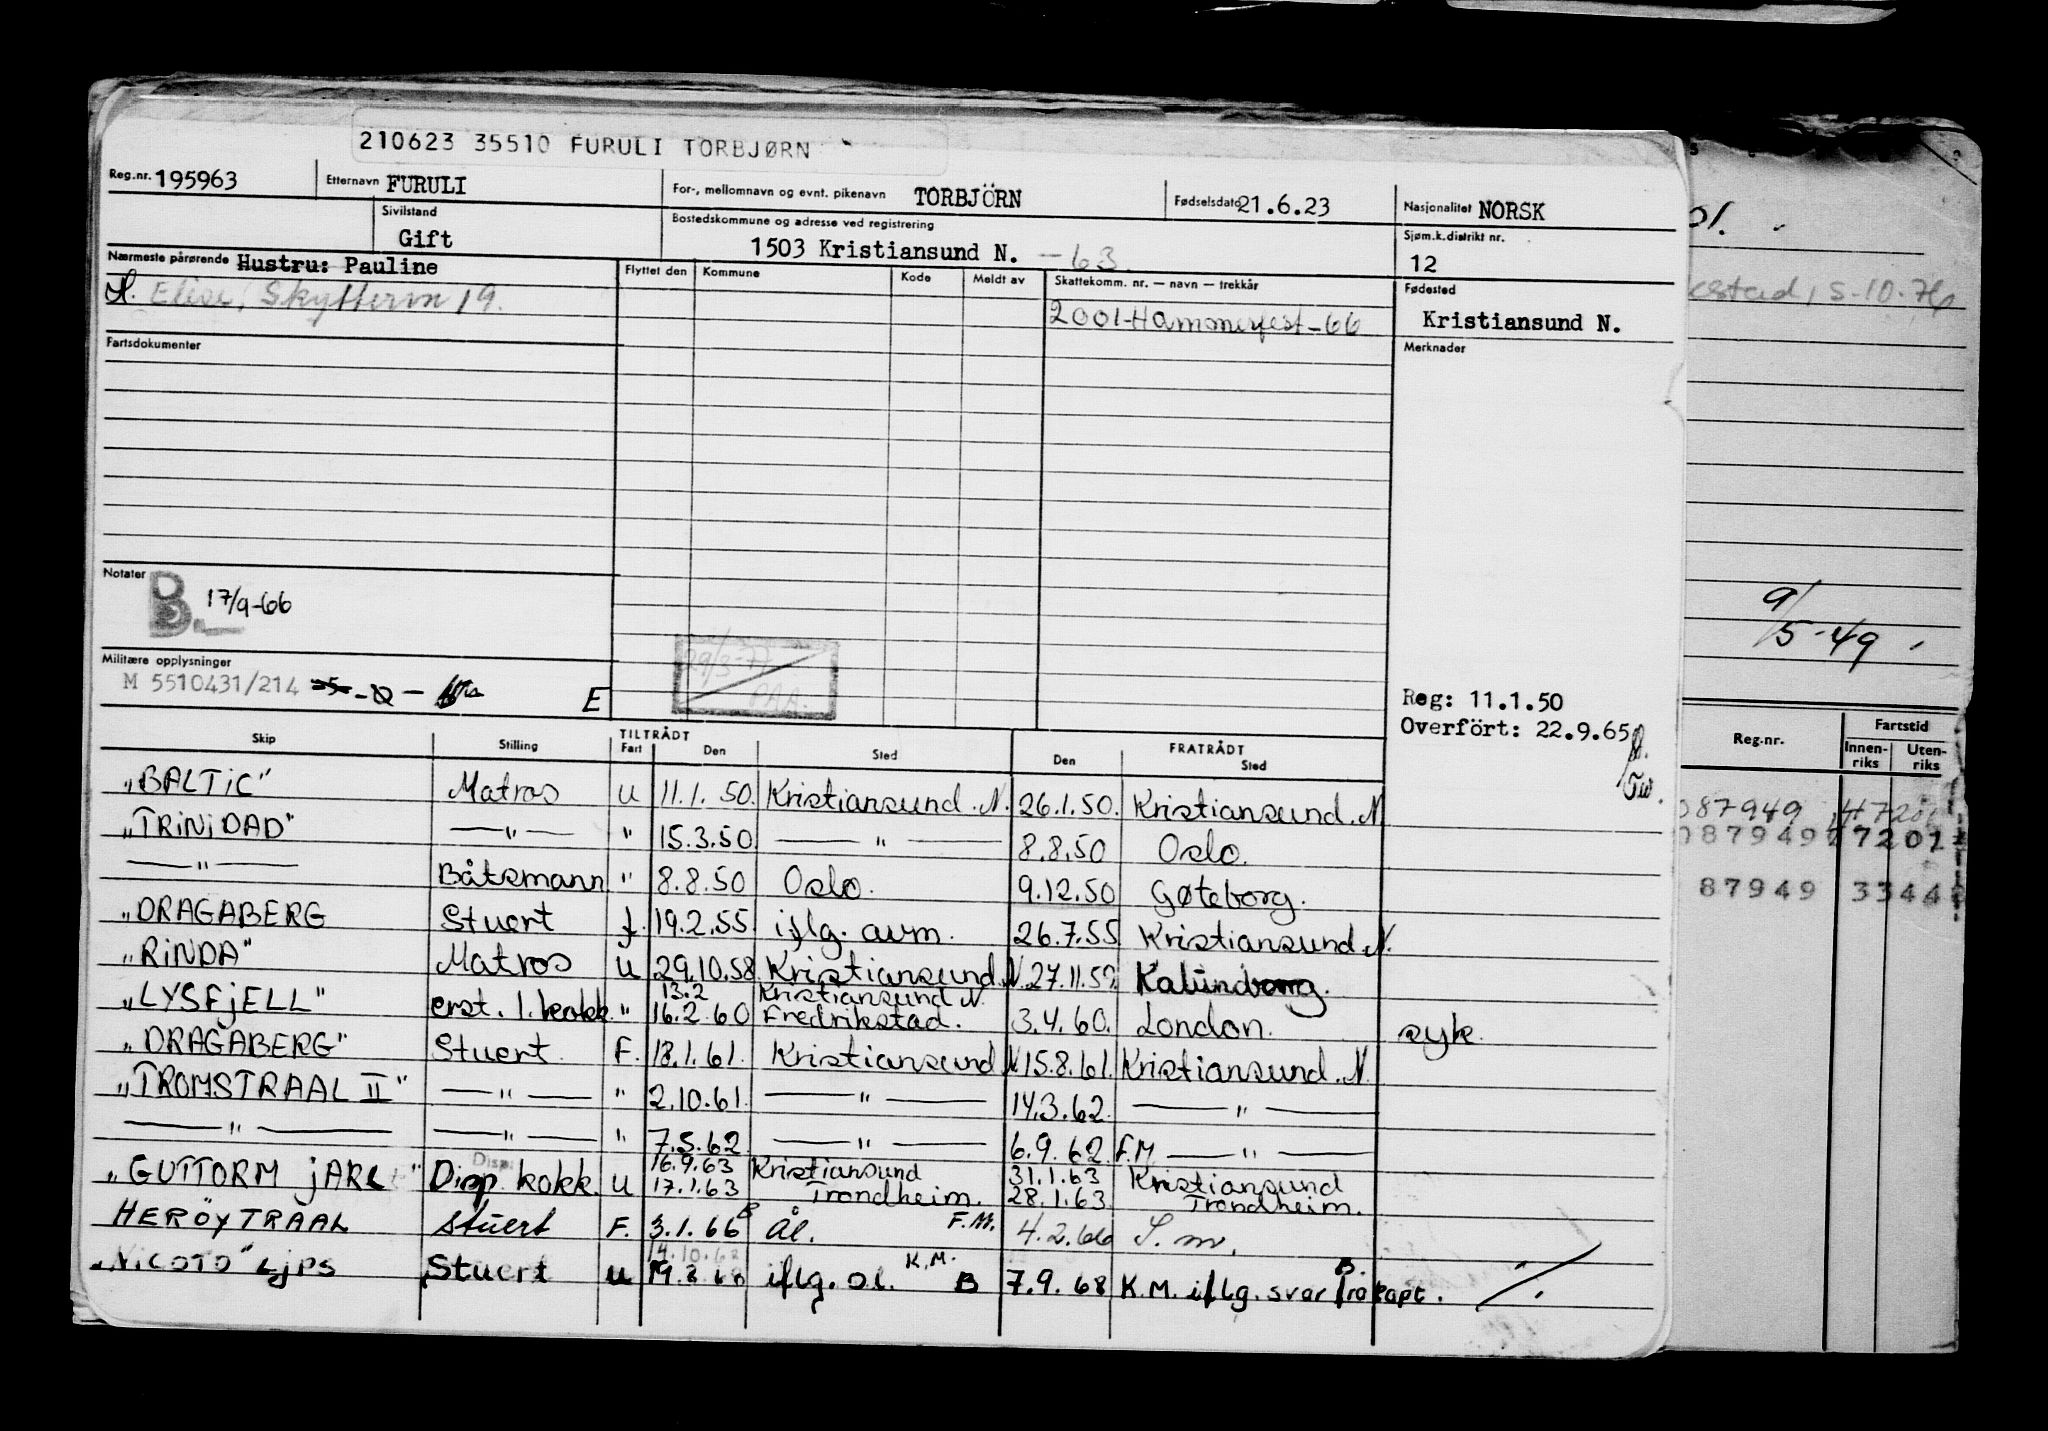 210623 35510 FURULI TORBJØRN
Reg.nr. 195963 Etternavn FURULI For-, mellomnavn og evnt. pikenavn TORBJÖRN Fødselsdato 21.6.23 Nasjonalitet NORSK
Sivilstand Gift Bostedskommune og adresse ved registrering 1503 Kristiansund N. -63. Sjøm.k.distrikt nr. 12
Nærmeste pårørende Hustru: Pauline Flyttet den Kommune Kode Meldt av Skattekomm. nr. — navn — trekkår Fødested
2001-Hammerfest-66 Kristiansund N.
Fartsdokumenter Merknader
Notater
B. 17/9-66
Militære opplysninger
M 5510431/214 E
29/3-77
PAA.
Reg: 11.1.50
Overfört: 22.9.65
TILTRÅDT FRATRÅDT
Skip Stilling Fart Den Sted Den Sted
"BALTIC" Matros U 11.1.50. Kristiansund.N. 26.1.50. Kristiansund.N
"TRINIDAD" — " — " 15.3.50 — " — 8.8.50 Oslo.
— " — Båtsmann " 8.8.50 Oslo. 9.12.50 Gøteborg.
"DRAGABERG Stuert f. 19.2.55 iflg. avm. 26.7.55 Kristiansund.N.
"RINDA" Matros U 29.10.58 Kristiansund.N. 27.11.58 Kalundborg.
13.2 Kristiansund N.
"LYSFJELL" erst. 1. kokk " 16.2.60 Fredrikstad. 3.4.60. London. syk.
"DRAGABERG" Stuert F. 18.1.61. Kristiansund N 15.8.61. Kristiansund.N.
"TROMSTRAAL II" — " — " 2.10.61. — " — 14.3.62. — " —
— " — — " — " 7.5.62 — " — 6.9.62 F.M. — " —
16.9.63 Kristiansund 31.1.63 Kristiansund
"GUTTORM JARL" Disp. kokk. U 17.1.63 Trondheim. 28.1.63. Trondheim.
HERÖYTRAAL Stuert F. 3.1.66 Ål. F.M. 4.2.66 S.m.
14.10.68
"VICOTO" Ljps Stuert U iflg. o.l. K.M. B 7.9.68 K.M. iflg. svar fra kapt. B.
9/5-49
Reg.nr. Fartstid
Innenriks Utenriks
087949
0879497 7201
87949 3344